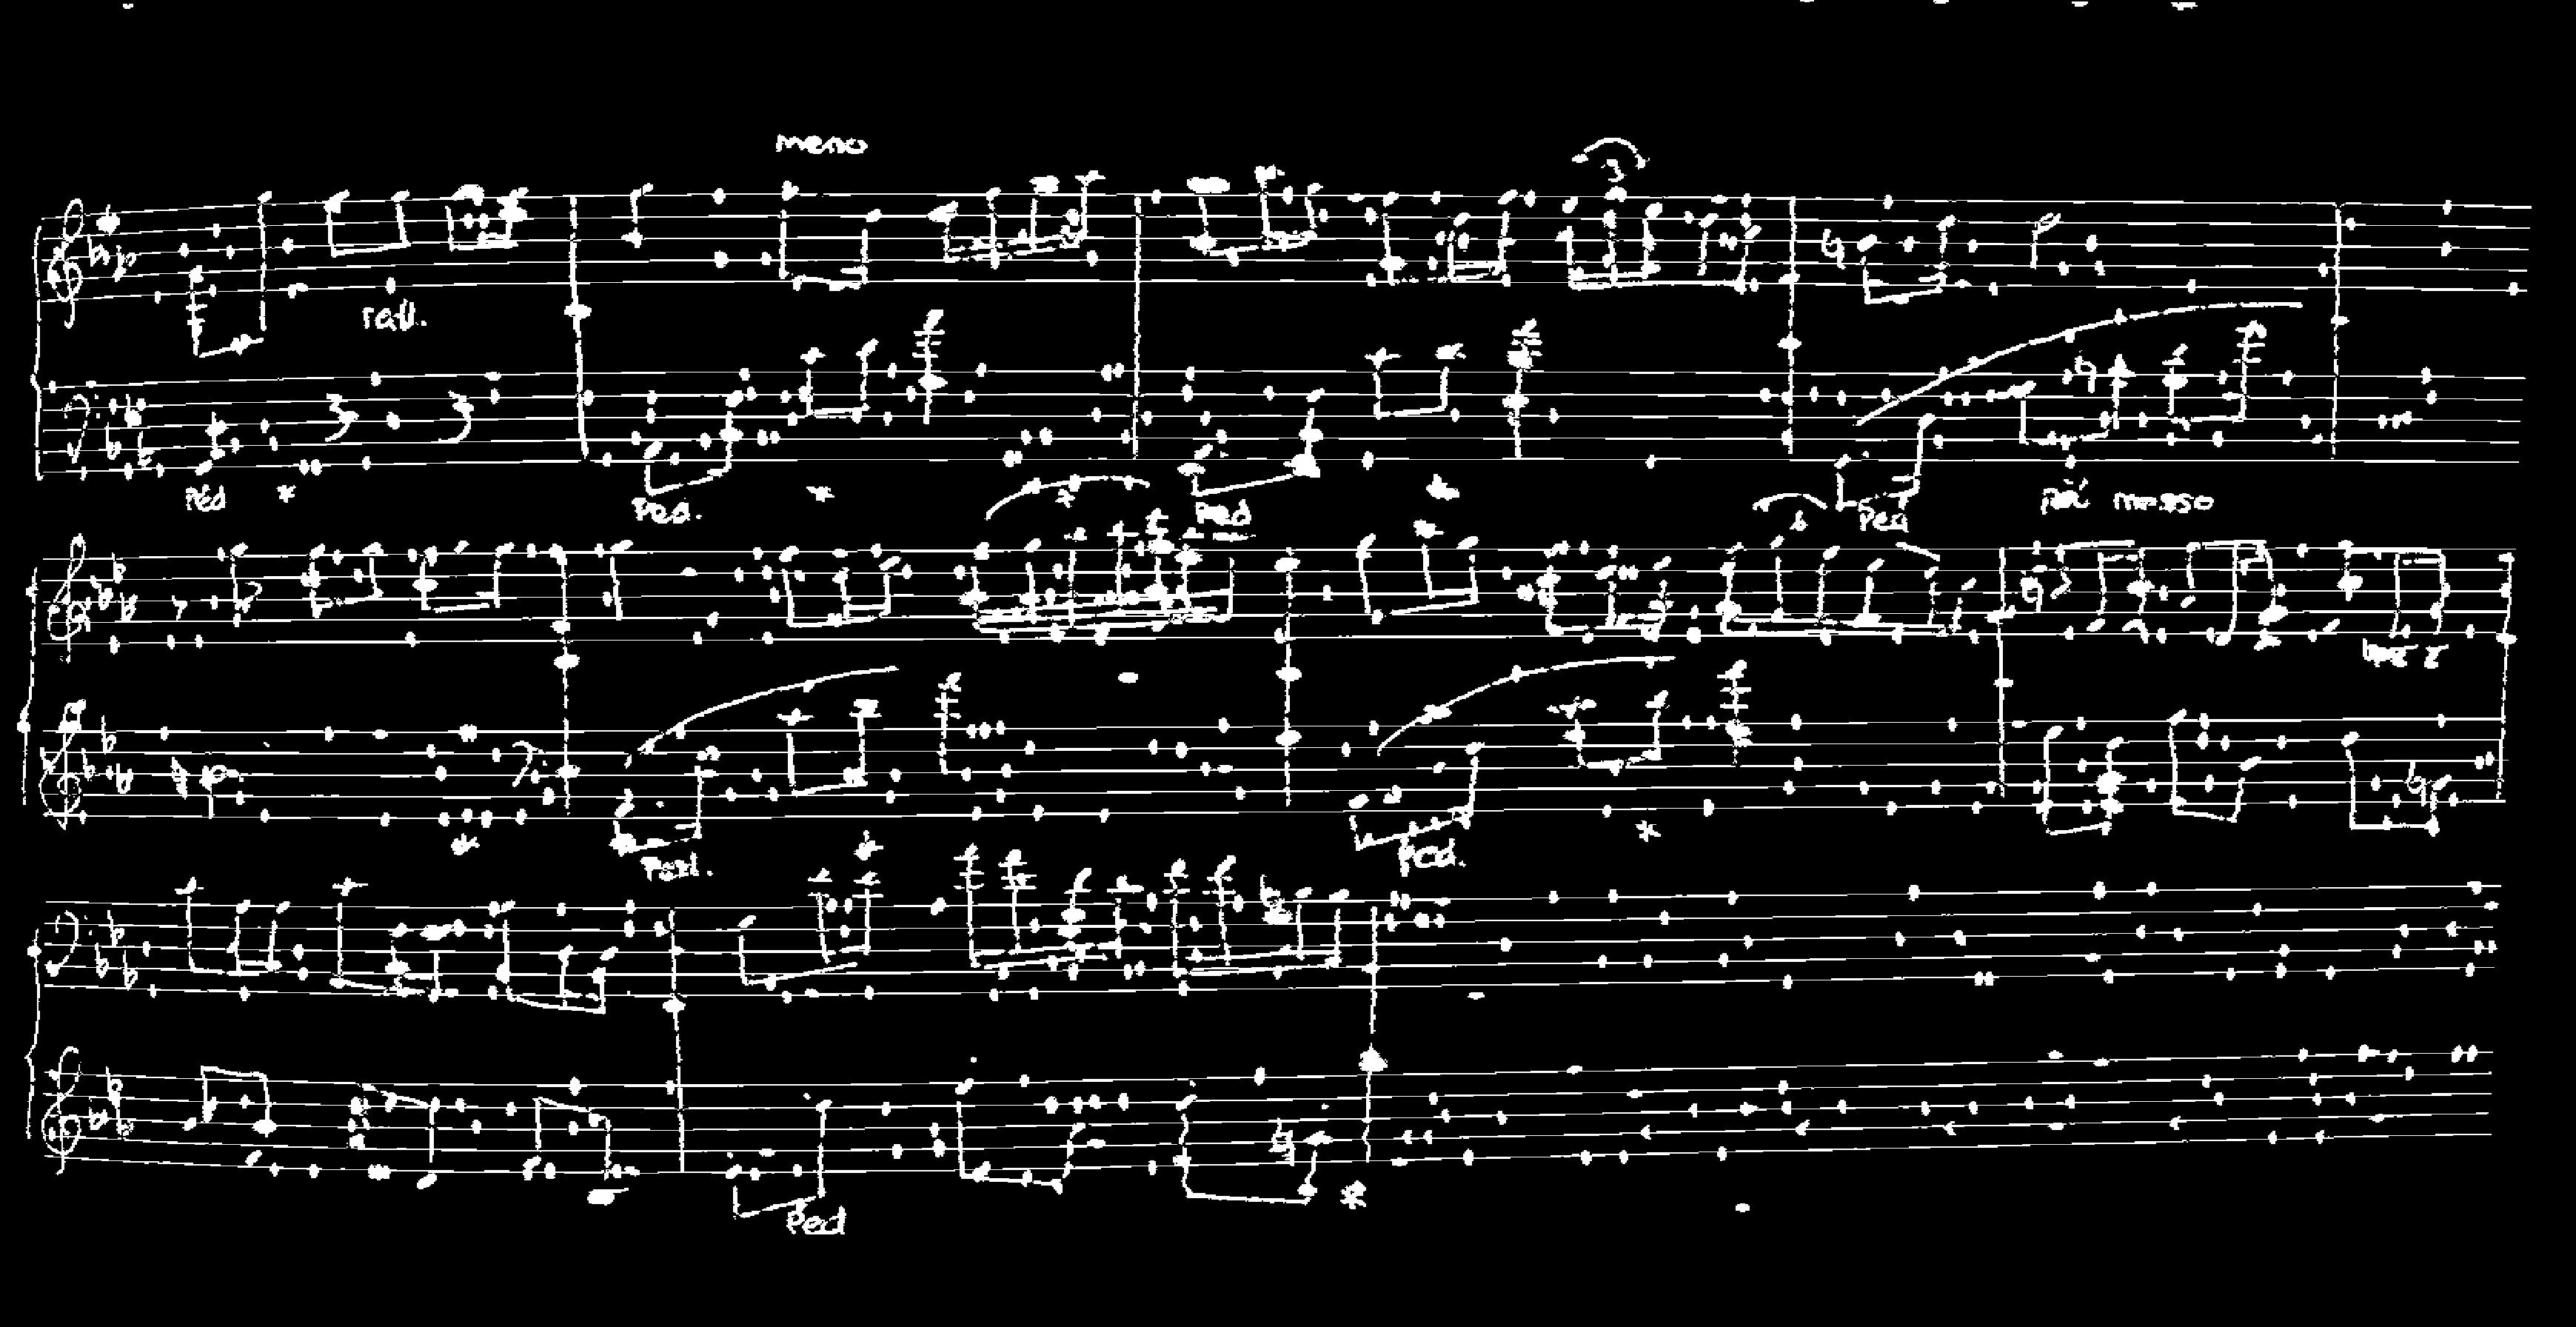 meno
3
rall.
Ped * Ped. * * Ped * Ped
6
più mosso
* Ped. * Ped. *
Ped *